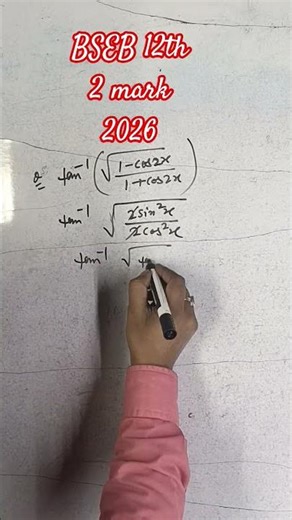 BSEB 12th
2 mark
2026
Q tan⁻¹ (√(1-cos2x / 1+cos2x))
tan⁻¹ √(2sin²x / 2cos²x)
tan⁻¹ √